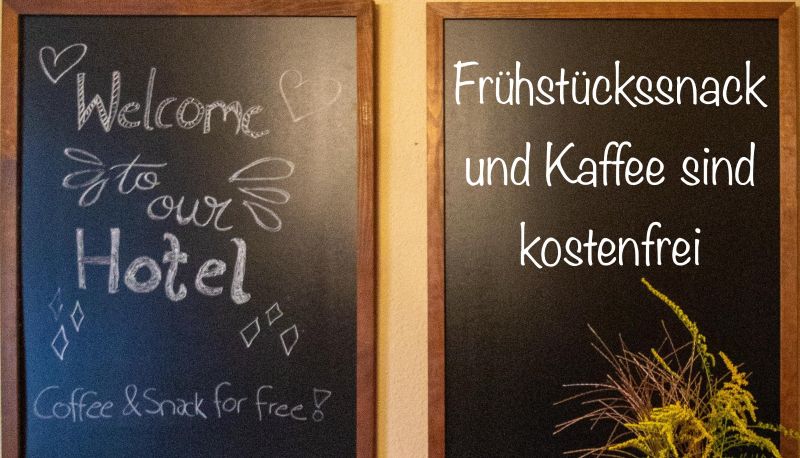 Welcome
to
our
Hotel
Coffee & Snack for free!
Frühstückssnack
und Kaffee sind
kostenfrei